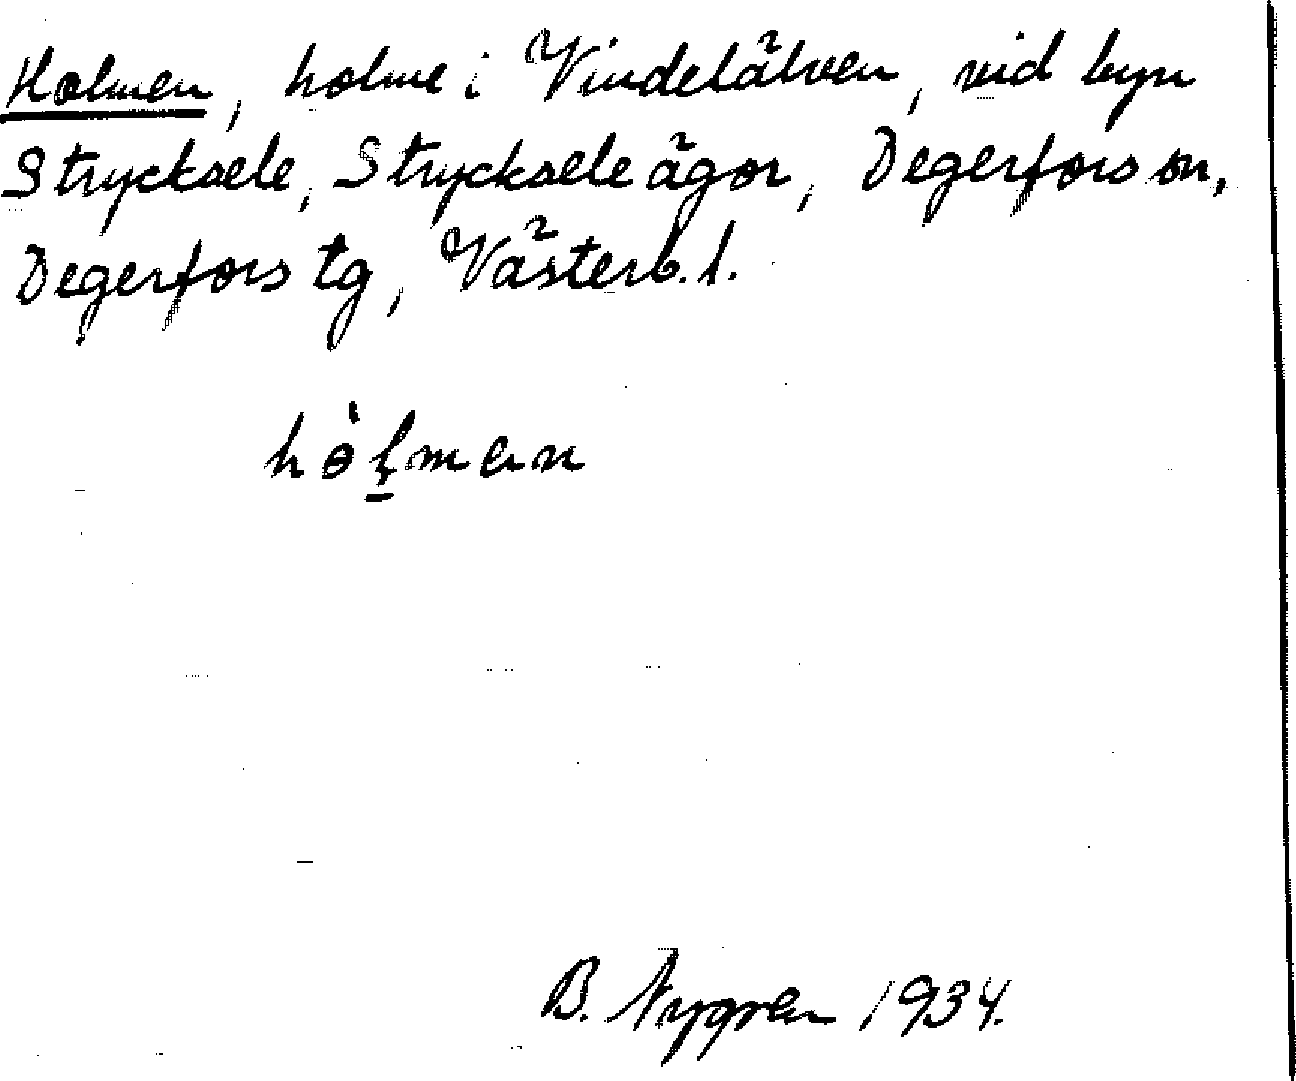 Holmen, holme i Vindelälven, vid byn
Strycksele, Strycksele ägor, Degerfors sn,
Degerfors tg, Västerb. l.
B. Nygren 1934.